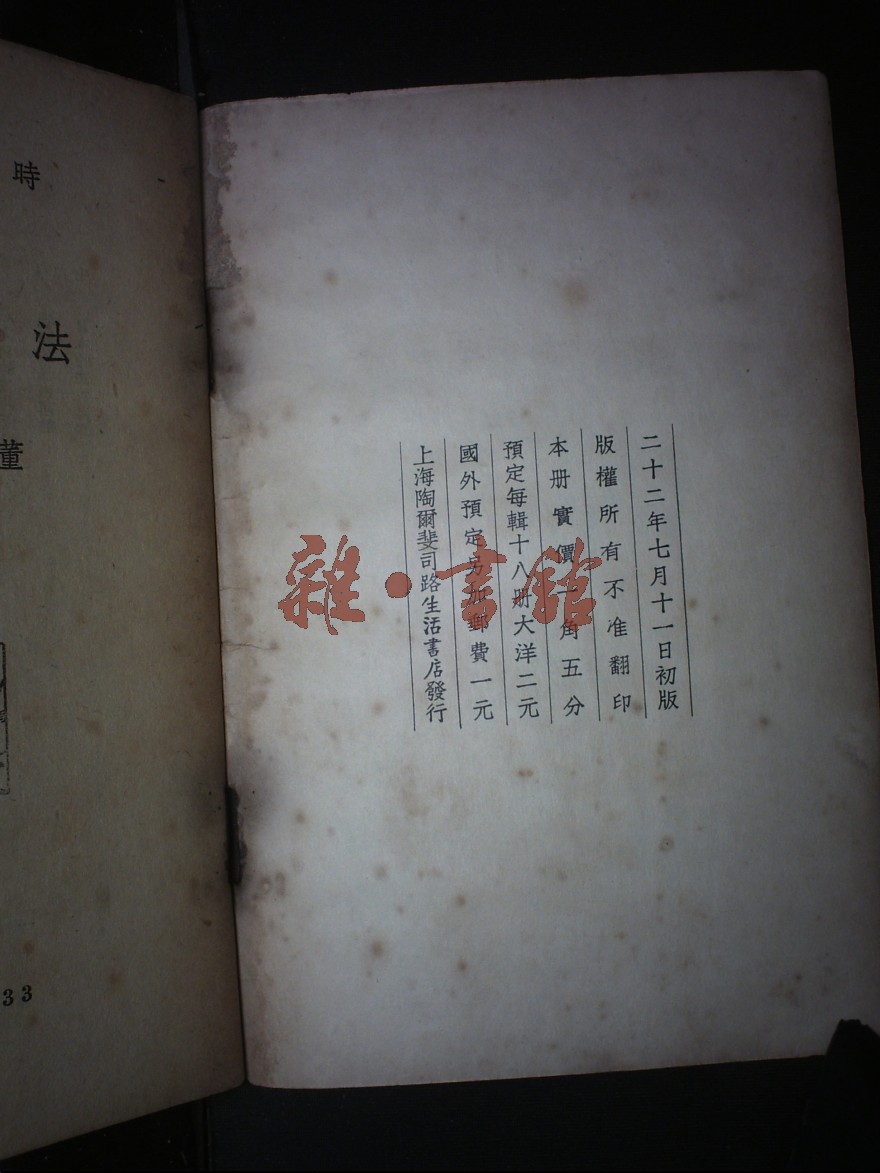 二十二年七月十一日初版
版權所有不准翻印
本册實價一角五分
預定每輯十八册大洋二元
國外預定另加郵費一元
上海陶爾斐司路生活書店發行
雜·書館
時
法
董
33